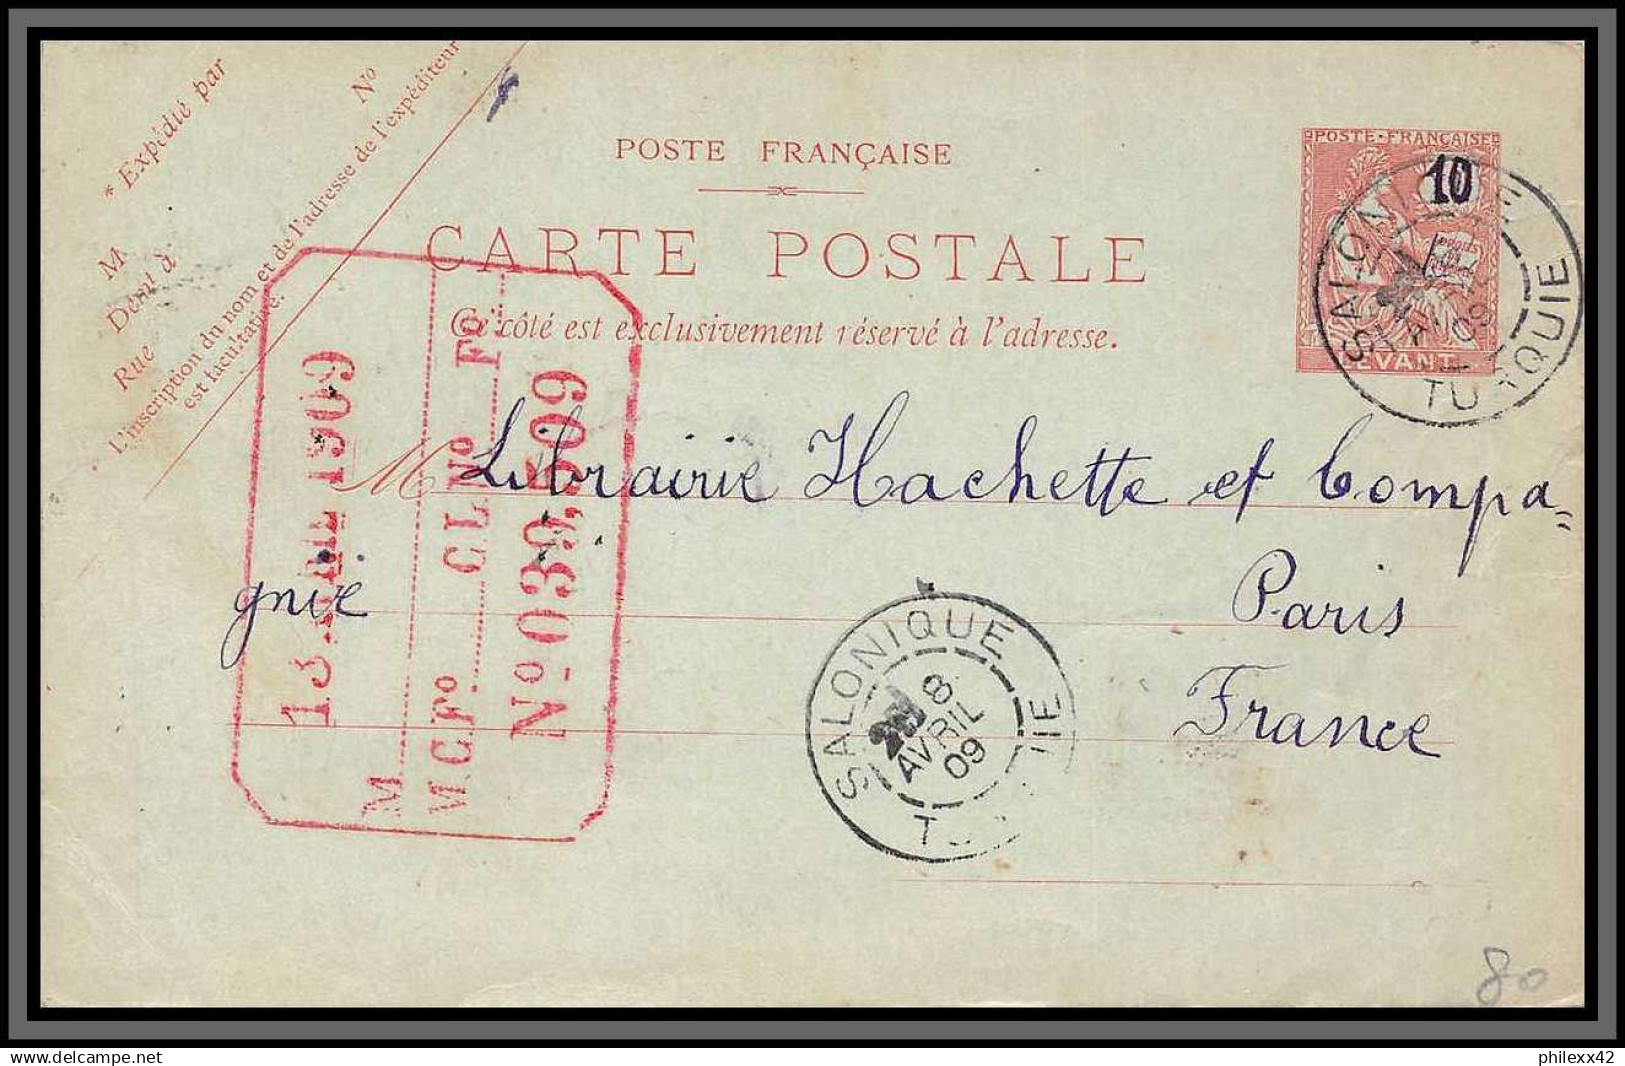 * Expédié par
M
Nº
Demt à
Rue
L'inscription du nom et de l'adresse de l'expéditeur
est facultative.
POSTE FRANÇAISE
CARTE POSTALE
Ce côté est exclusivement réservé à l'adresse.
POSTE-FRANÇAISE
10
LEVANT
SALONIQUE
AVRIL
09
TURQUIE
M Librairie Hachette et Compa=
gnie
Paris
France
13 1909
M
M.C.Fº CL Nº Fº
Nº 039,509
SALONIQUE
8
AVRIL
09
80
philexx42